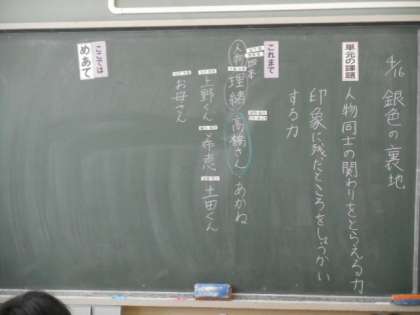 4/16 銀色の裏地
単元の課題
人物同士の関わりをとらえる力
印象に残たところをしょうかい
する力
これまで
人物
理緒 高橋さん あかね
上野くん 希恵 土田くん
お母さん
ここでは
めあて